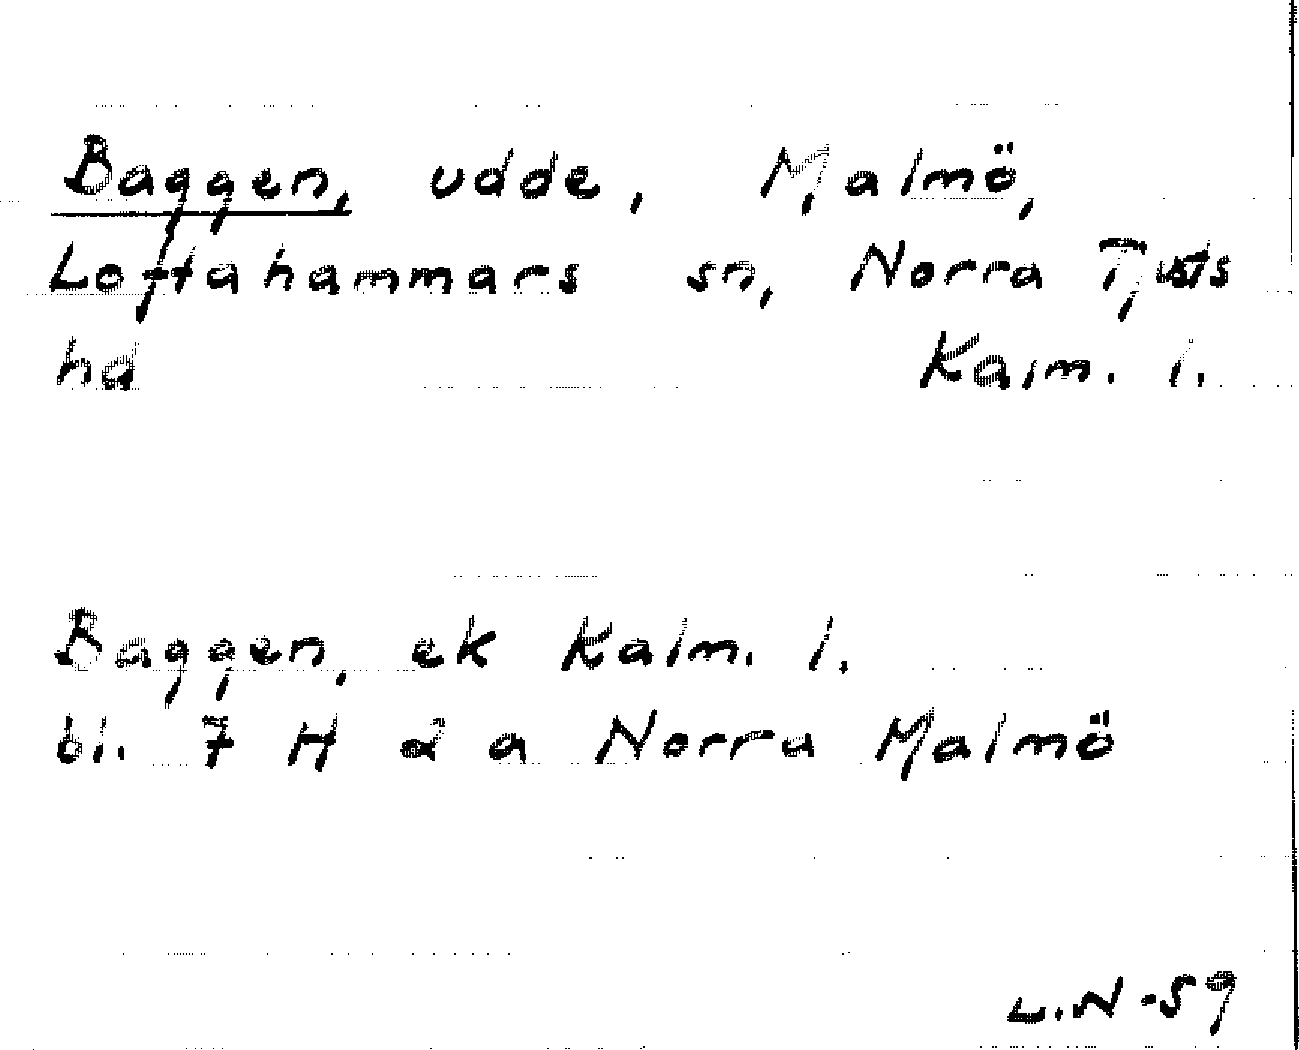 Baggen, udde, Malmö,
Loftahammars sn, Norra Tjusts
hd Kalm. l.
Baggen, ek Kalm. l.
bl. 7 H d a Norra Malmö
L.N -59